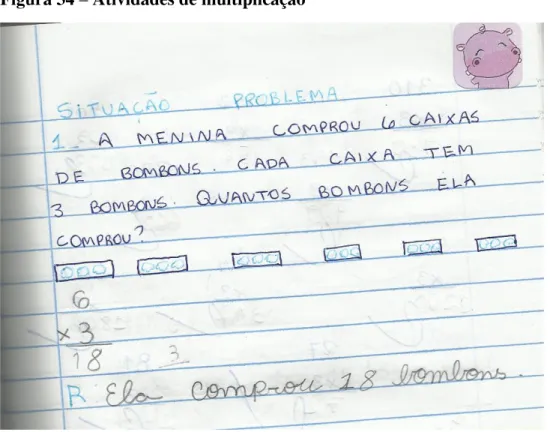 Figura 34 – Atividades de multiplicação
SITUAÇÃO PROBLEMA
1_ A MENINA COMPROU 6 CAIXAS
DE BOMBONS. CADA CAIXA TEM
3 BOMBONS. QUANTOS BOMBONS ELA
COMPROU?
6
x 3
18 3
R Ela comprou 18 bombons.